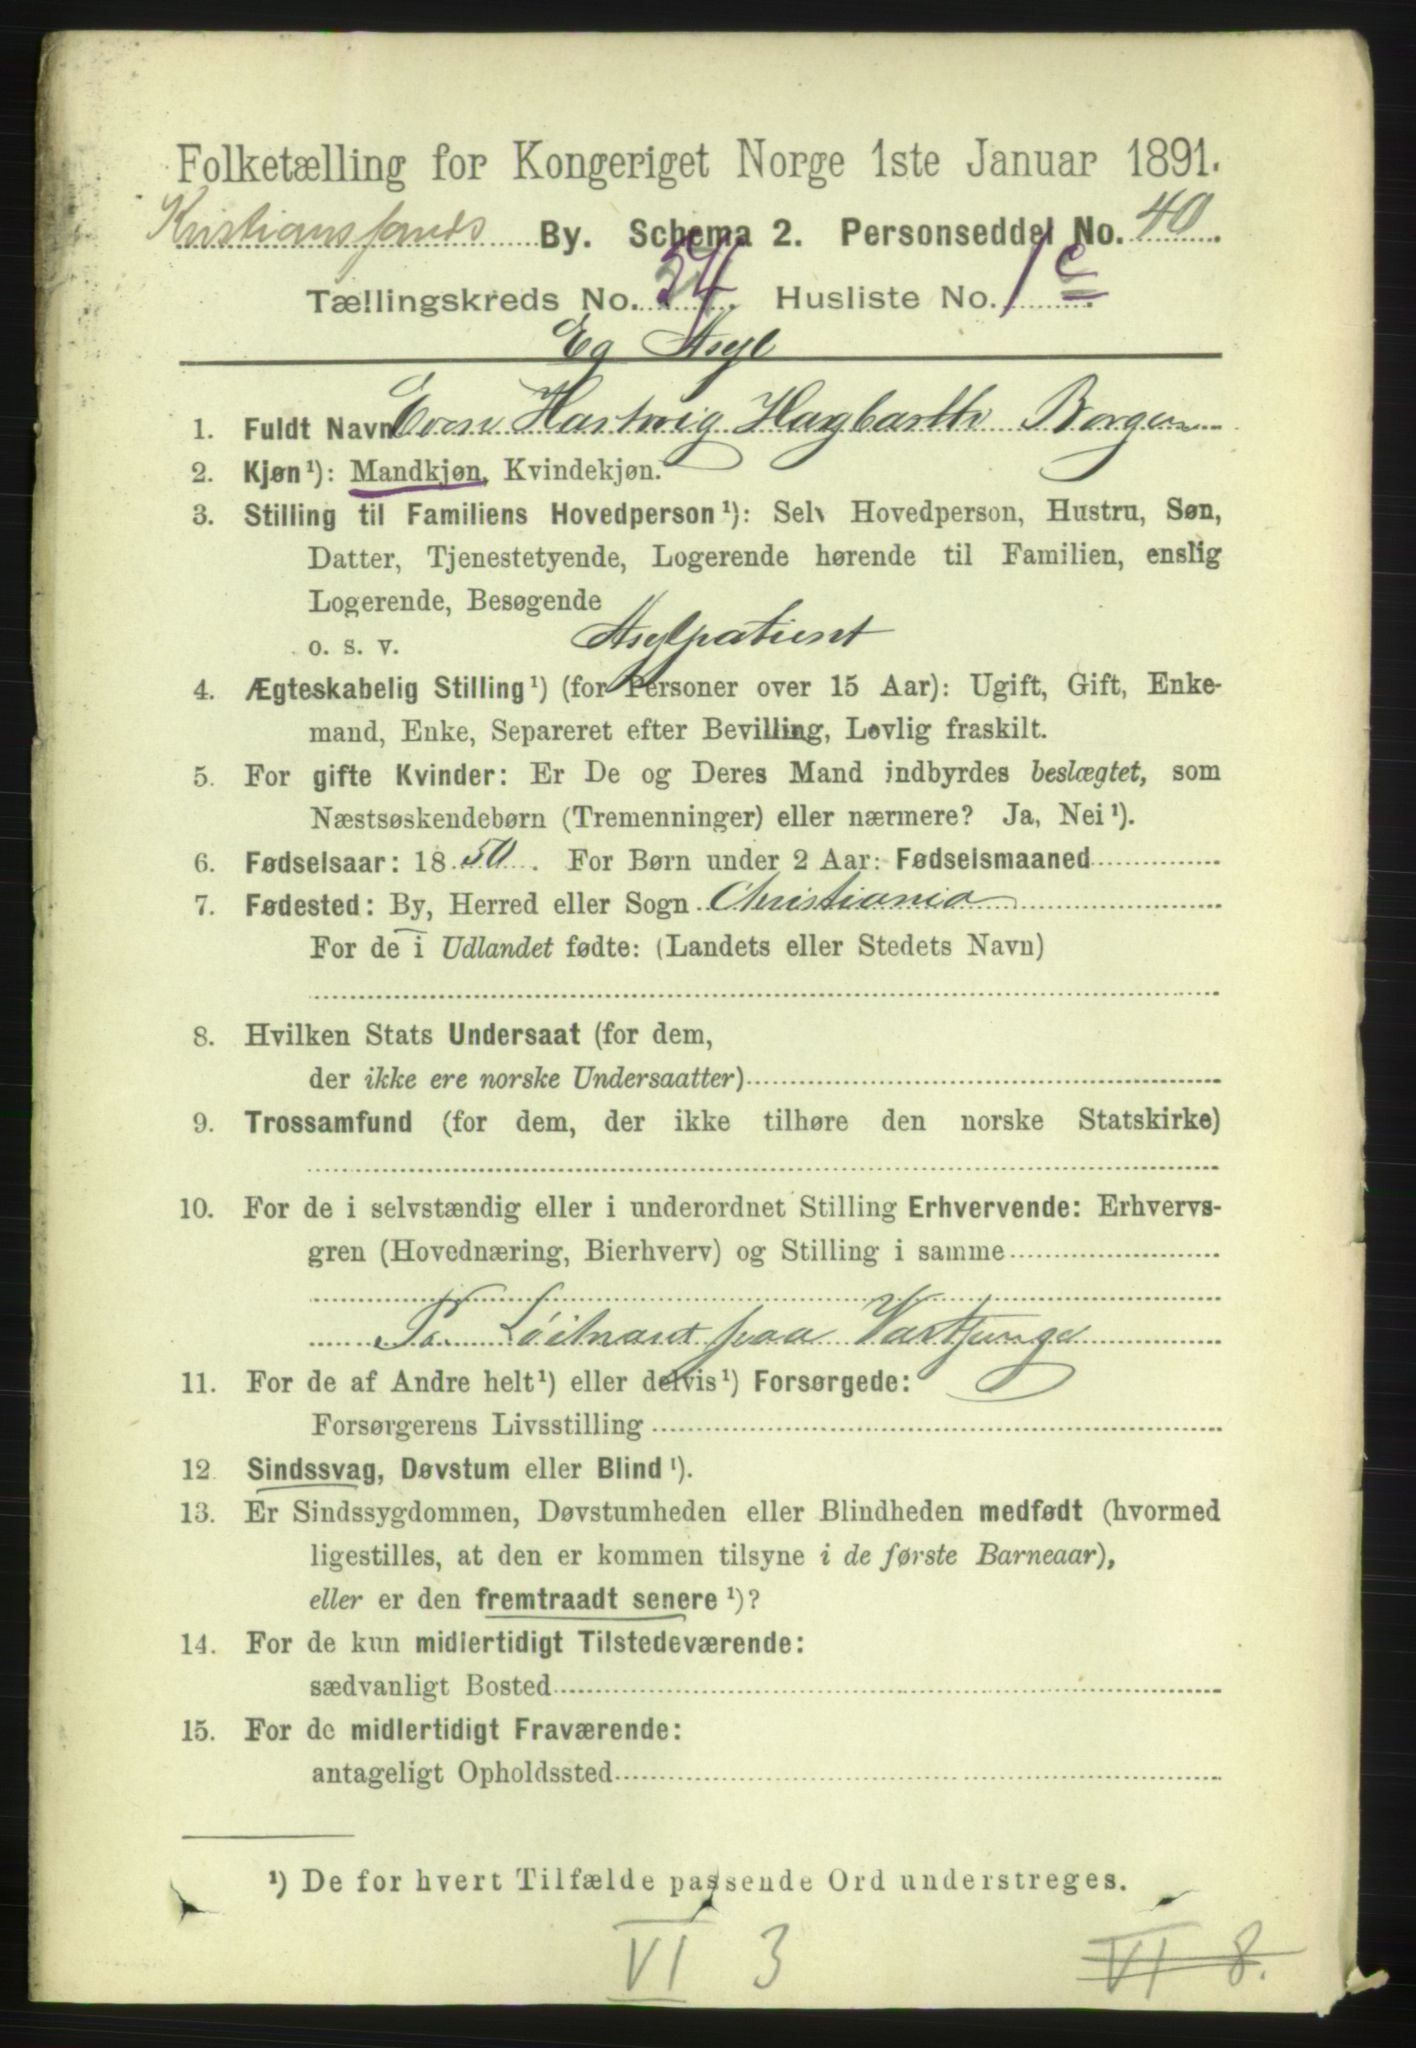 Folketælling for Kongeriget Norge 1ste Januar 1891.
Kristianssands By. Schema 2. Personseddel No. 40.
Tællingskreds No. 34. Husliste No. 1 c.
Eg Asyl
1. Fuldt Navn Even Hartvig Hagbarth Borgen
2. Kjøn¹): Mandkjøn, Kvindekjøn.
3. Stilling til Familiens Hovedperson¹): Selv Hovedperson, Hustru, Søn,
Datter, Tjenestetyende, Logerende hørende til Familien, enslig
Logerende, Besøgende
o. s. v. Asylpatient
4. Ægteskabelig Stilling¹) (for Personer over 15 Aar): Ugift, Gift, Enke-
mand, Enke, Separeret efter Bevilling, Lovlig fraskilt.
5. For gifte Kvinder: Er De og Deres Mand indbyrdes beslægtet, som
Næstsøskendebørn (Tremenninger) eller nærmere? Ja, Nei¹).
6. Fødselsaar: 1850. For Børn under 2 Aar: Fødselsmaaned
7. Fødested: By, Herred eller Sogn Christiania
For de i Udlandet fødte: (Landets eller Stedets Navn)
8. Hvilken Stats Undersaat (for dem,
der ikke ere norske Undersaatter)
9. Trossamfund (for dem, der ikke tilhøre den norske Statskirke)
10. For de i selvstændig eller i underordnet Stilling Erhvervende: Erhvervs-
gren (Hovednæring, Bierhverv) og Stilling i samme
Løitnant paa Vartpenge
11. For de af Andre helt¹) eller delvis¹) Forsørgede:
Forsørgerens Livsstilling
12 Sindssvag, Døvstum eller Blind¹).
13. Er Sindssygdommen, Døvstumheden eller Blindheden medfødt (hvormed
ligestilles, at den er kommen tilsyne i de første Barneaar),
eller er den fremtraadt senere¹)?
14. For de kun midlertidigt Tilstedeværende:
sædvanligt Bosted
15. For de midlertidigt Fraværende:
antageligt Opholdssted
¹) De for hvert Tilfælde passende Ord understreges.
VI 3 VI 8.